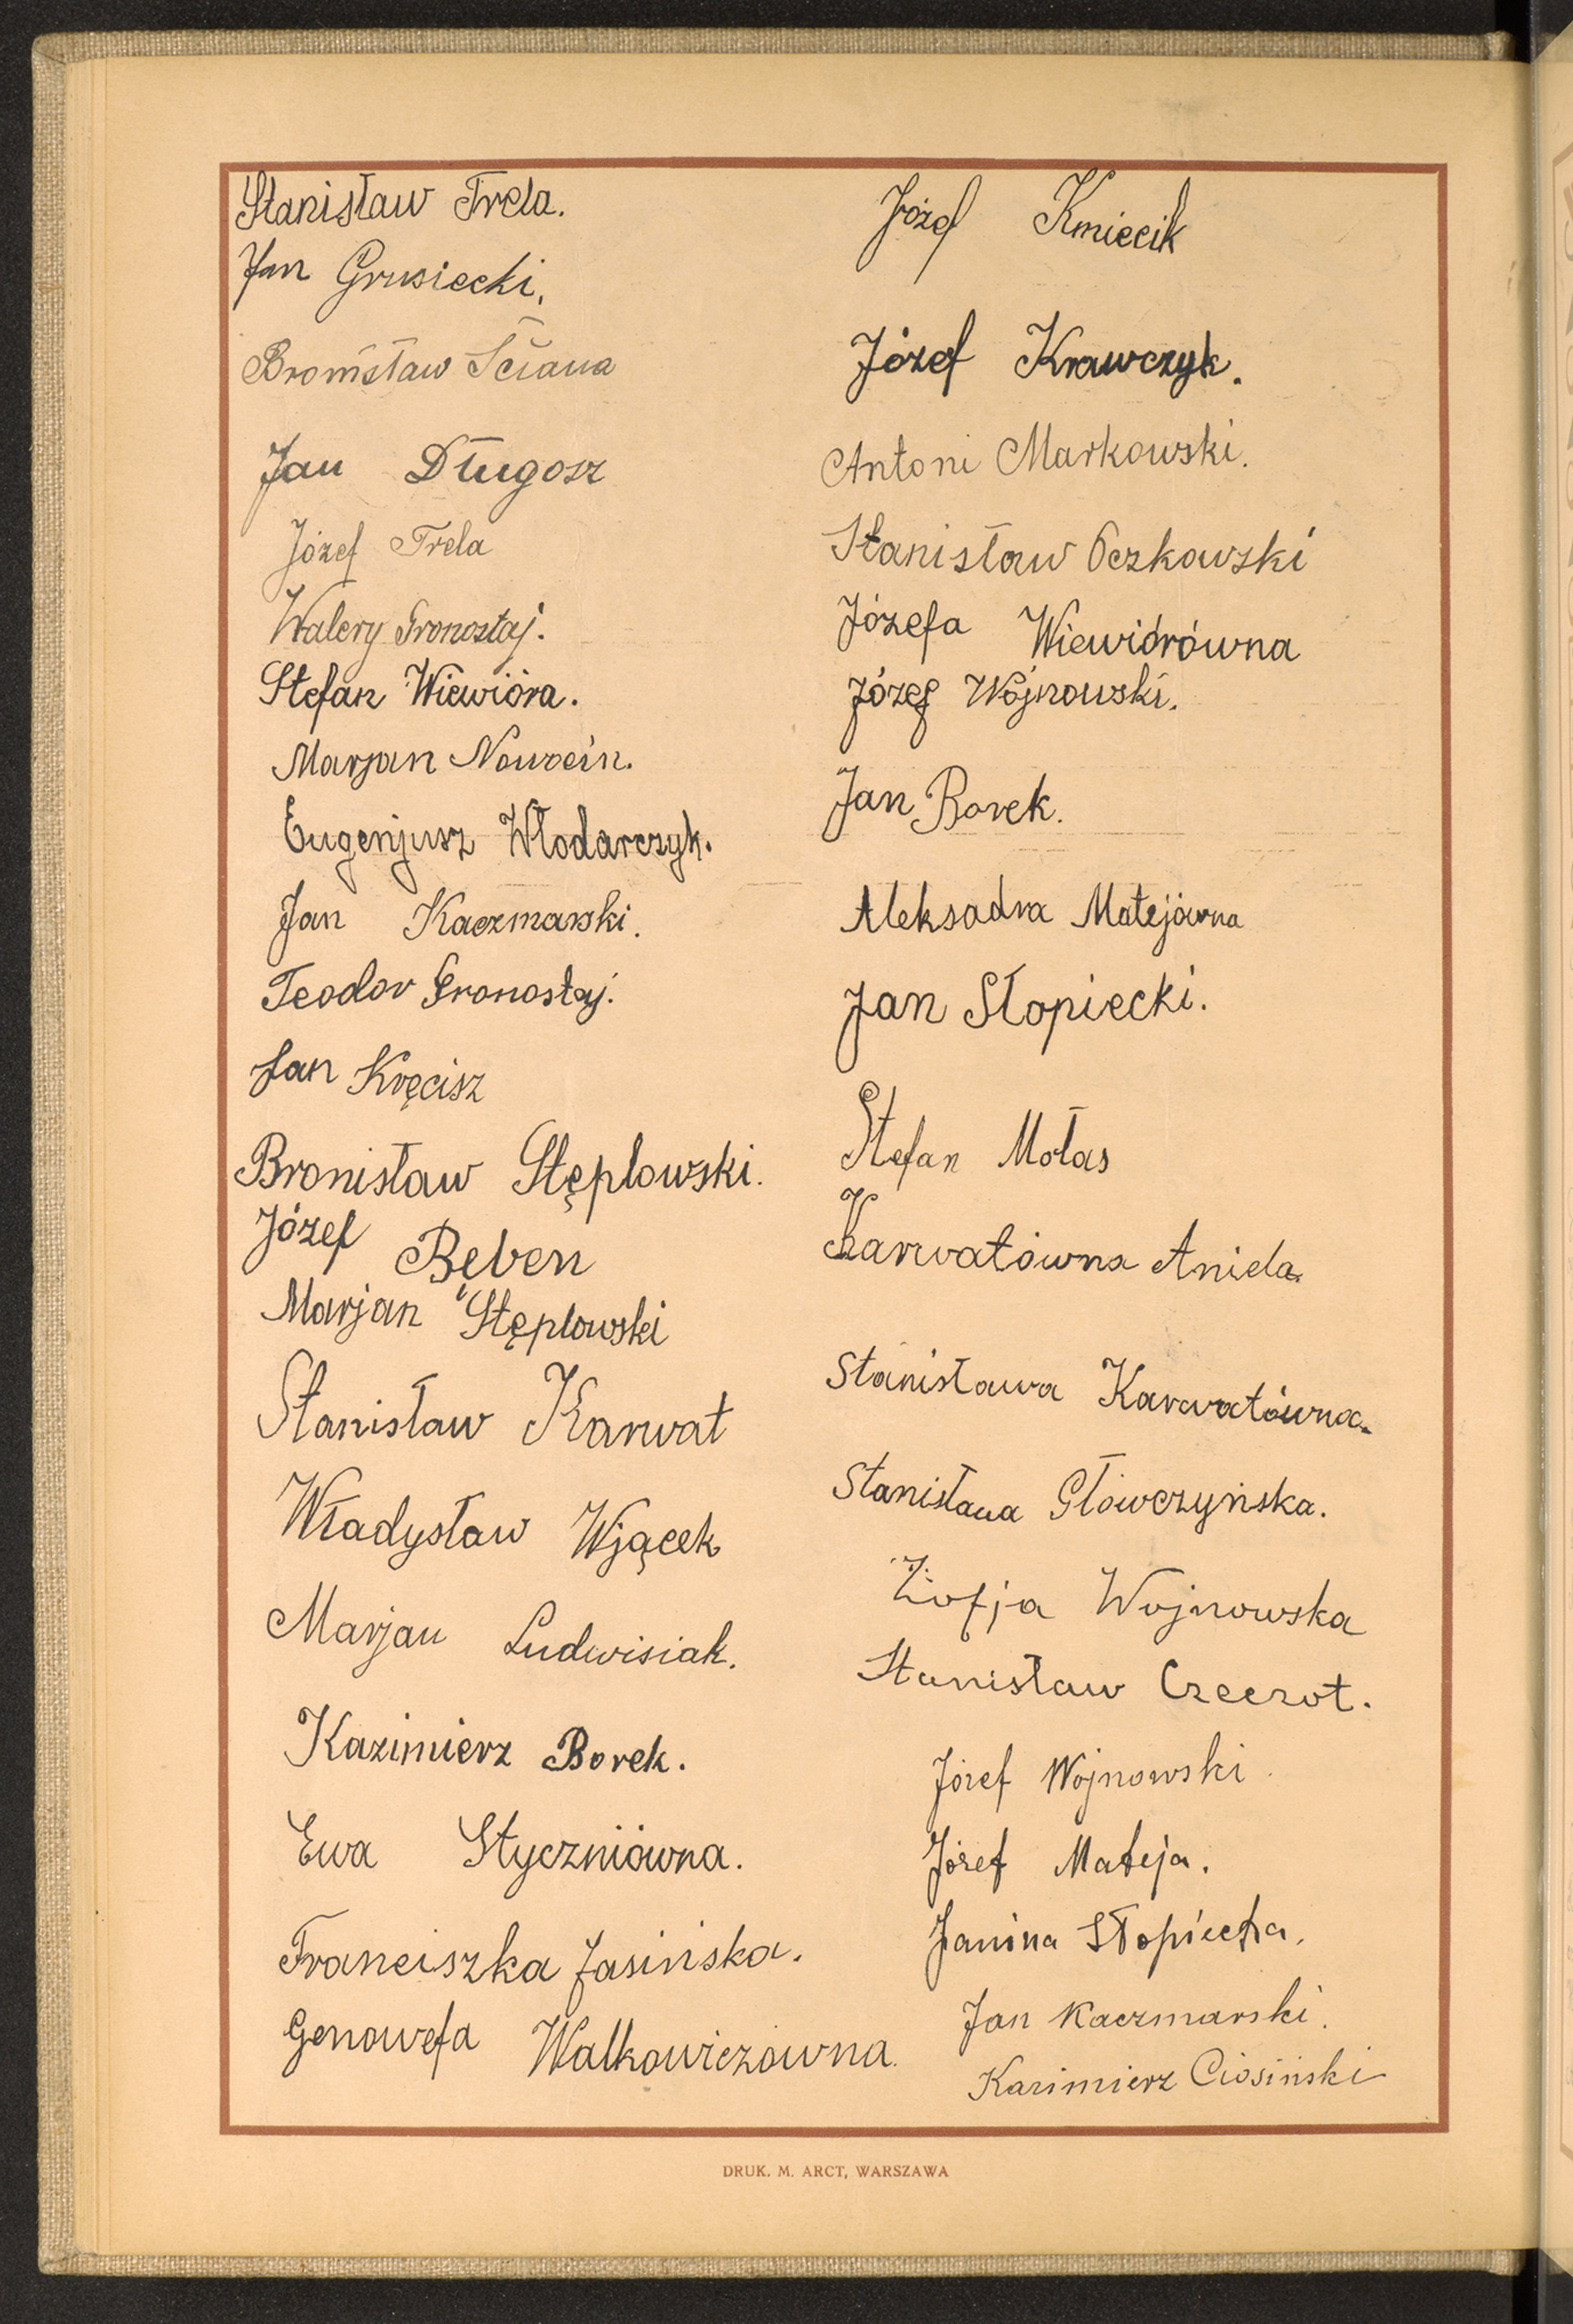 Stanisław Trela.
Jan Grusiecki.
Bronisław Ściana
Jan Długosz
Józef Trela
Walery Gronostaj.
Stefan Wiewióra.
Marjan Nowoein.
Eugenjusz Włodarczyk.
Jan Kaczmarski.
Teodor Gronostaj.
Jan Kręcisz
Bronisław Stęplowski.
Józef Bęben
Marjan Stęplowski
Stanisław Karwat
Władysław Wjącek
Marjan Ludwisiak.
Kazimierz Borek.
Ewa Styczniówna.
Franciszka Jasińska.
Genowefa Walkowiczówna.
Józef Kmiecik
Józef Krawczyk.
Antoni Markowski.
Stanisław Oczkowski
Józefa Wiewiórówna
Józef Wójnowski.
Jan Borek.
Aleksadra Matejówna
Jan Słopiecki.
Stefan Mołas
Karwatówna Aniela.
Stanisława Karwatówna.
Stanisława Główczyńska.
Zofja Wojnowska
Stanisław Czeczot.
Józef Wojnowski.
Józef Mateja.
Janina Słopiecka.
Jan Kaczmarski.
Kazimierz Ciosiński
DRUK. M. ARCT, WARSZAWA